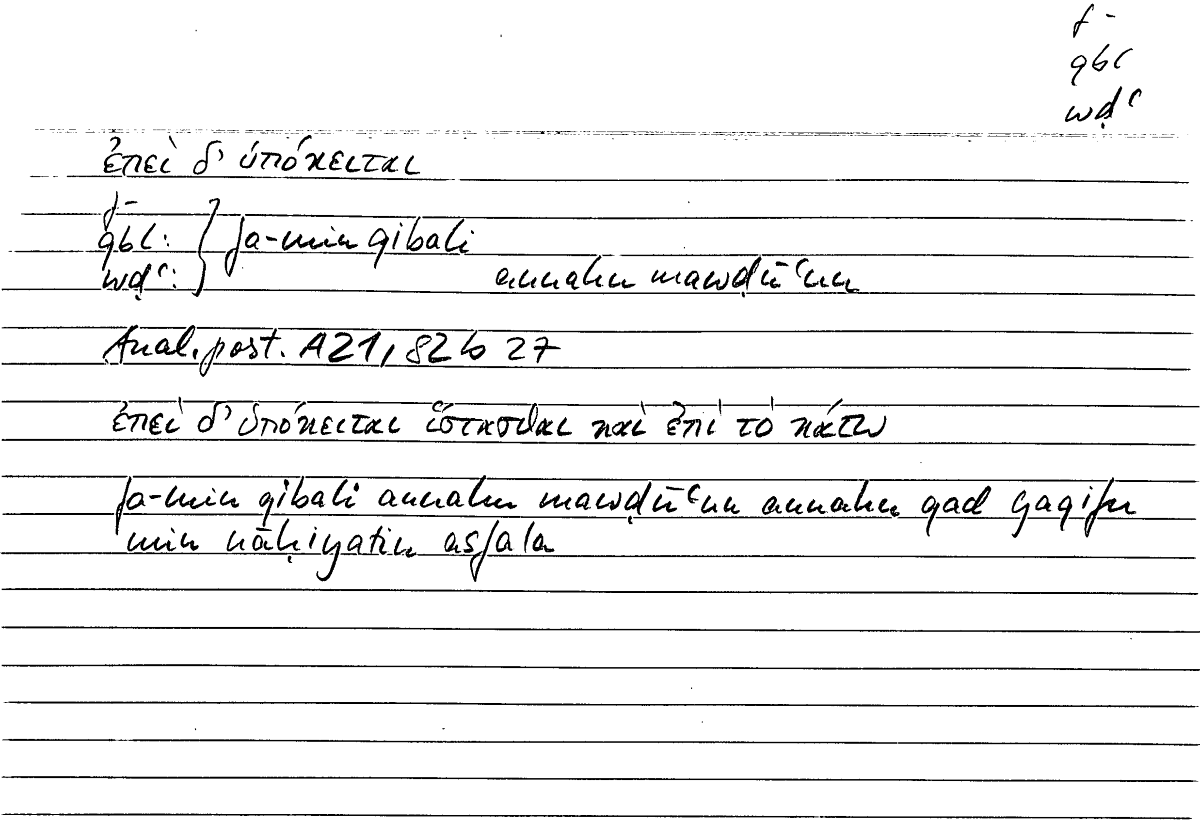 f-
qbl
wḍʿ
ἐπεὶ δ' ὑπόκειται
f-
qbl:
wḍʿ:
fa-min qibali
annahu mawḍūʿun
Anal. post. A21, 82 b 27
ἐπεὶ δ' ὑπόκειται ἵστασθαι καὶ ἐπὶ τὸ κάτω
fa-min qibali annahu mawḍūʿun annahu qad yaqifu
min nāḥiyatin asfala